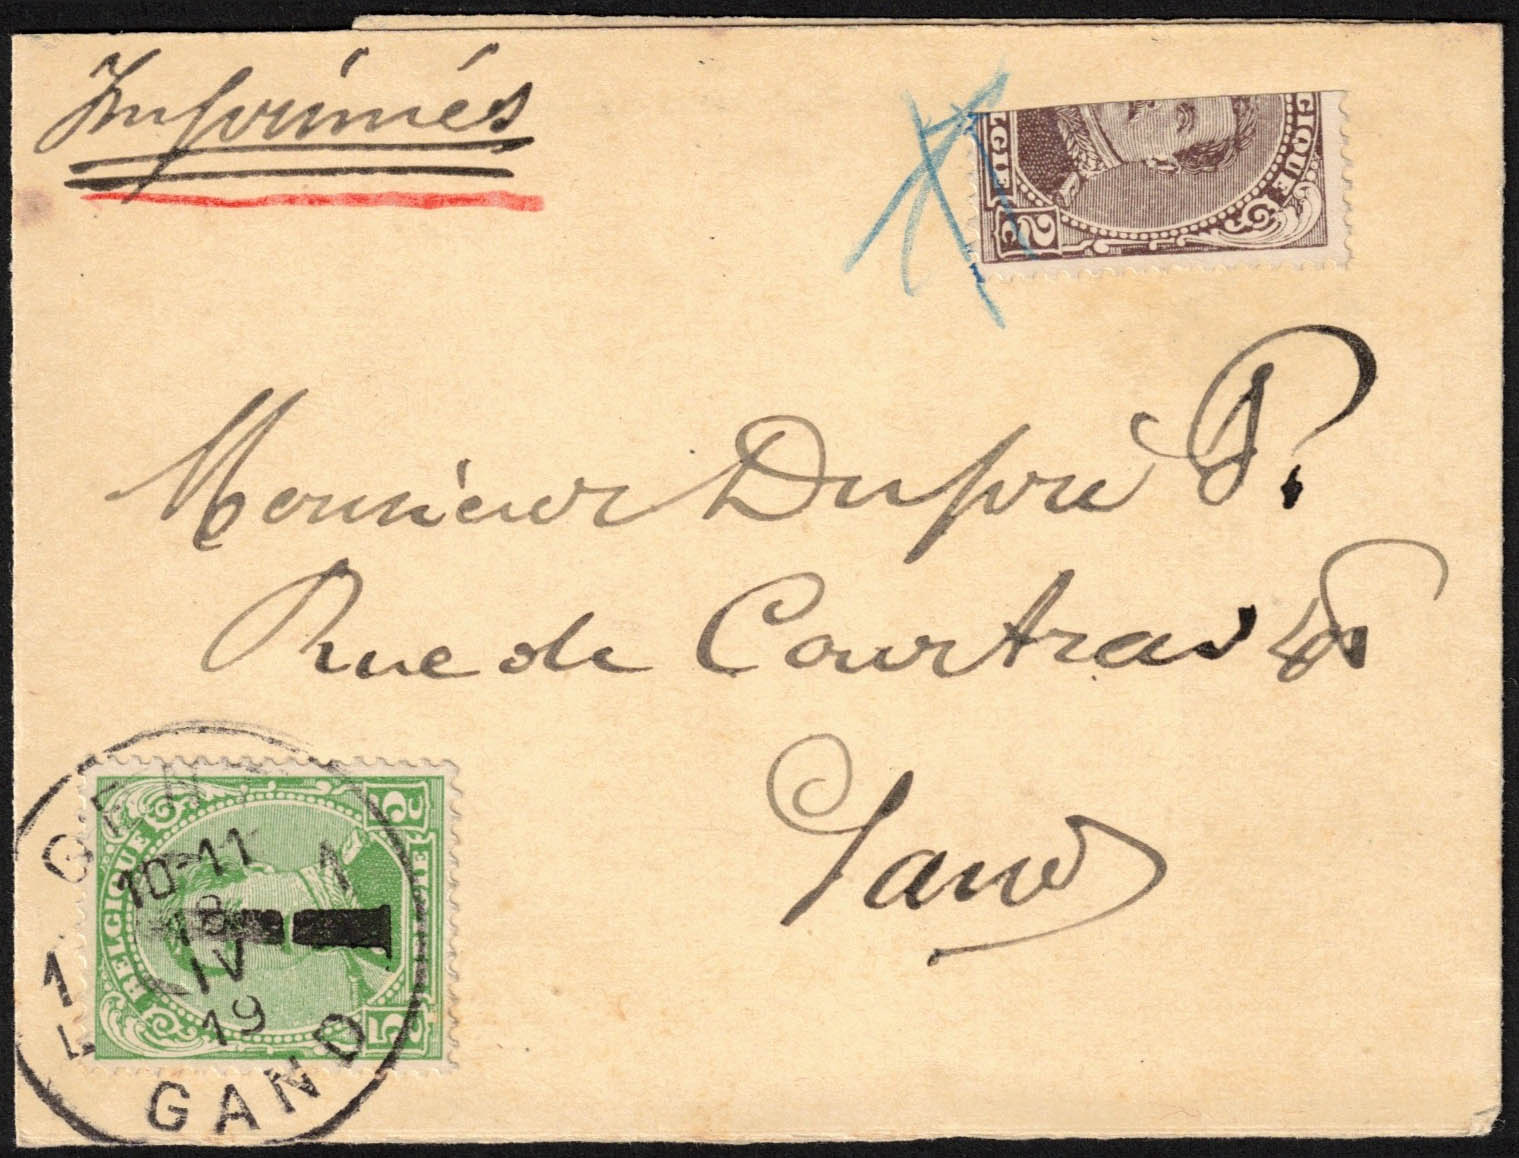 Imprimés
LGIQUE
2
C
Monsieur Dupré P.
Rue de Courtrai
Gand
GENT
10-11
18
IV
19
1
L
GAND
BELGIQUE
5
C
5
T